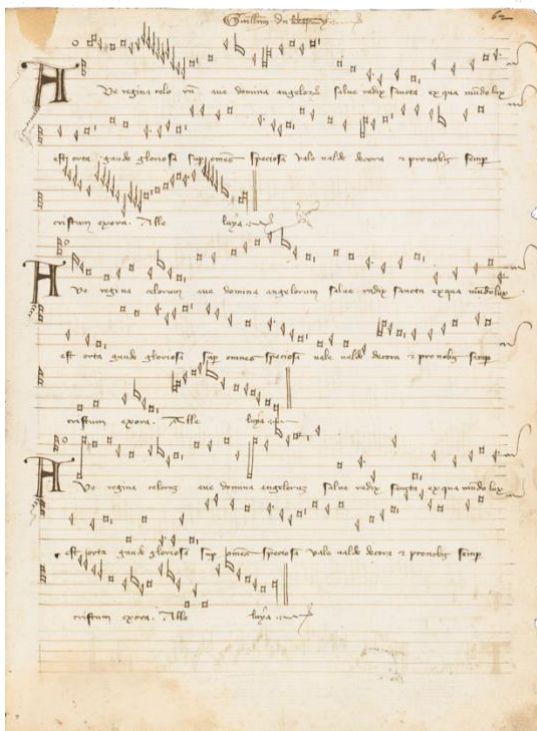 Guillm du fay
62
Ave regina celo rum ave domina angelorum salve radix sancta ex qua mundo lux
est orta gaude gloriosa sup omnes speciosa vale valde decora et pro nobis semp
cristum exora. Alle luya
Ave regina celorum ave domina angelorum salve radix sancta ex qua mundo lux
est orta gaude gloriosa sup omnes speciosa vale valde decora et pro nobis semp
cristum exora. Alle luya
Ave regina celorum ave domina angelorum salve radix sancta ex qua mundo lux
est orta gaude gloriosa sup omnes speciosa vale valde decora et pro nobis semp
cristum exora. Alle luya